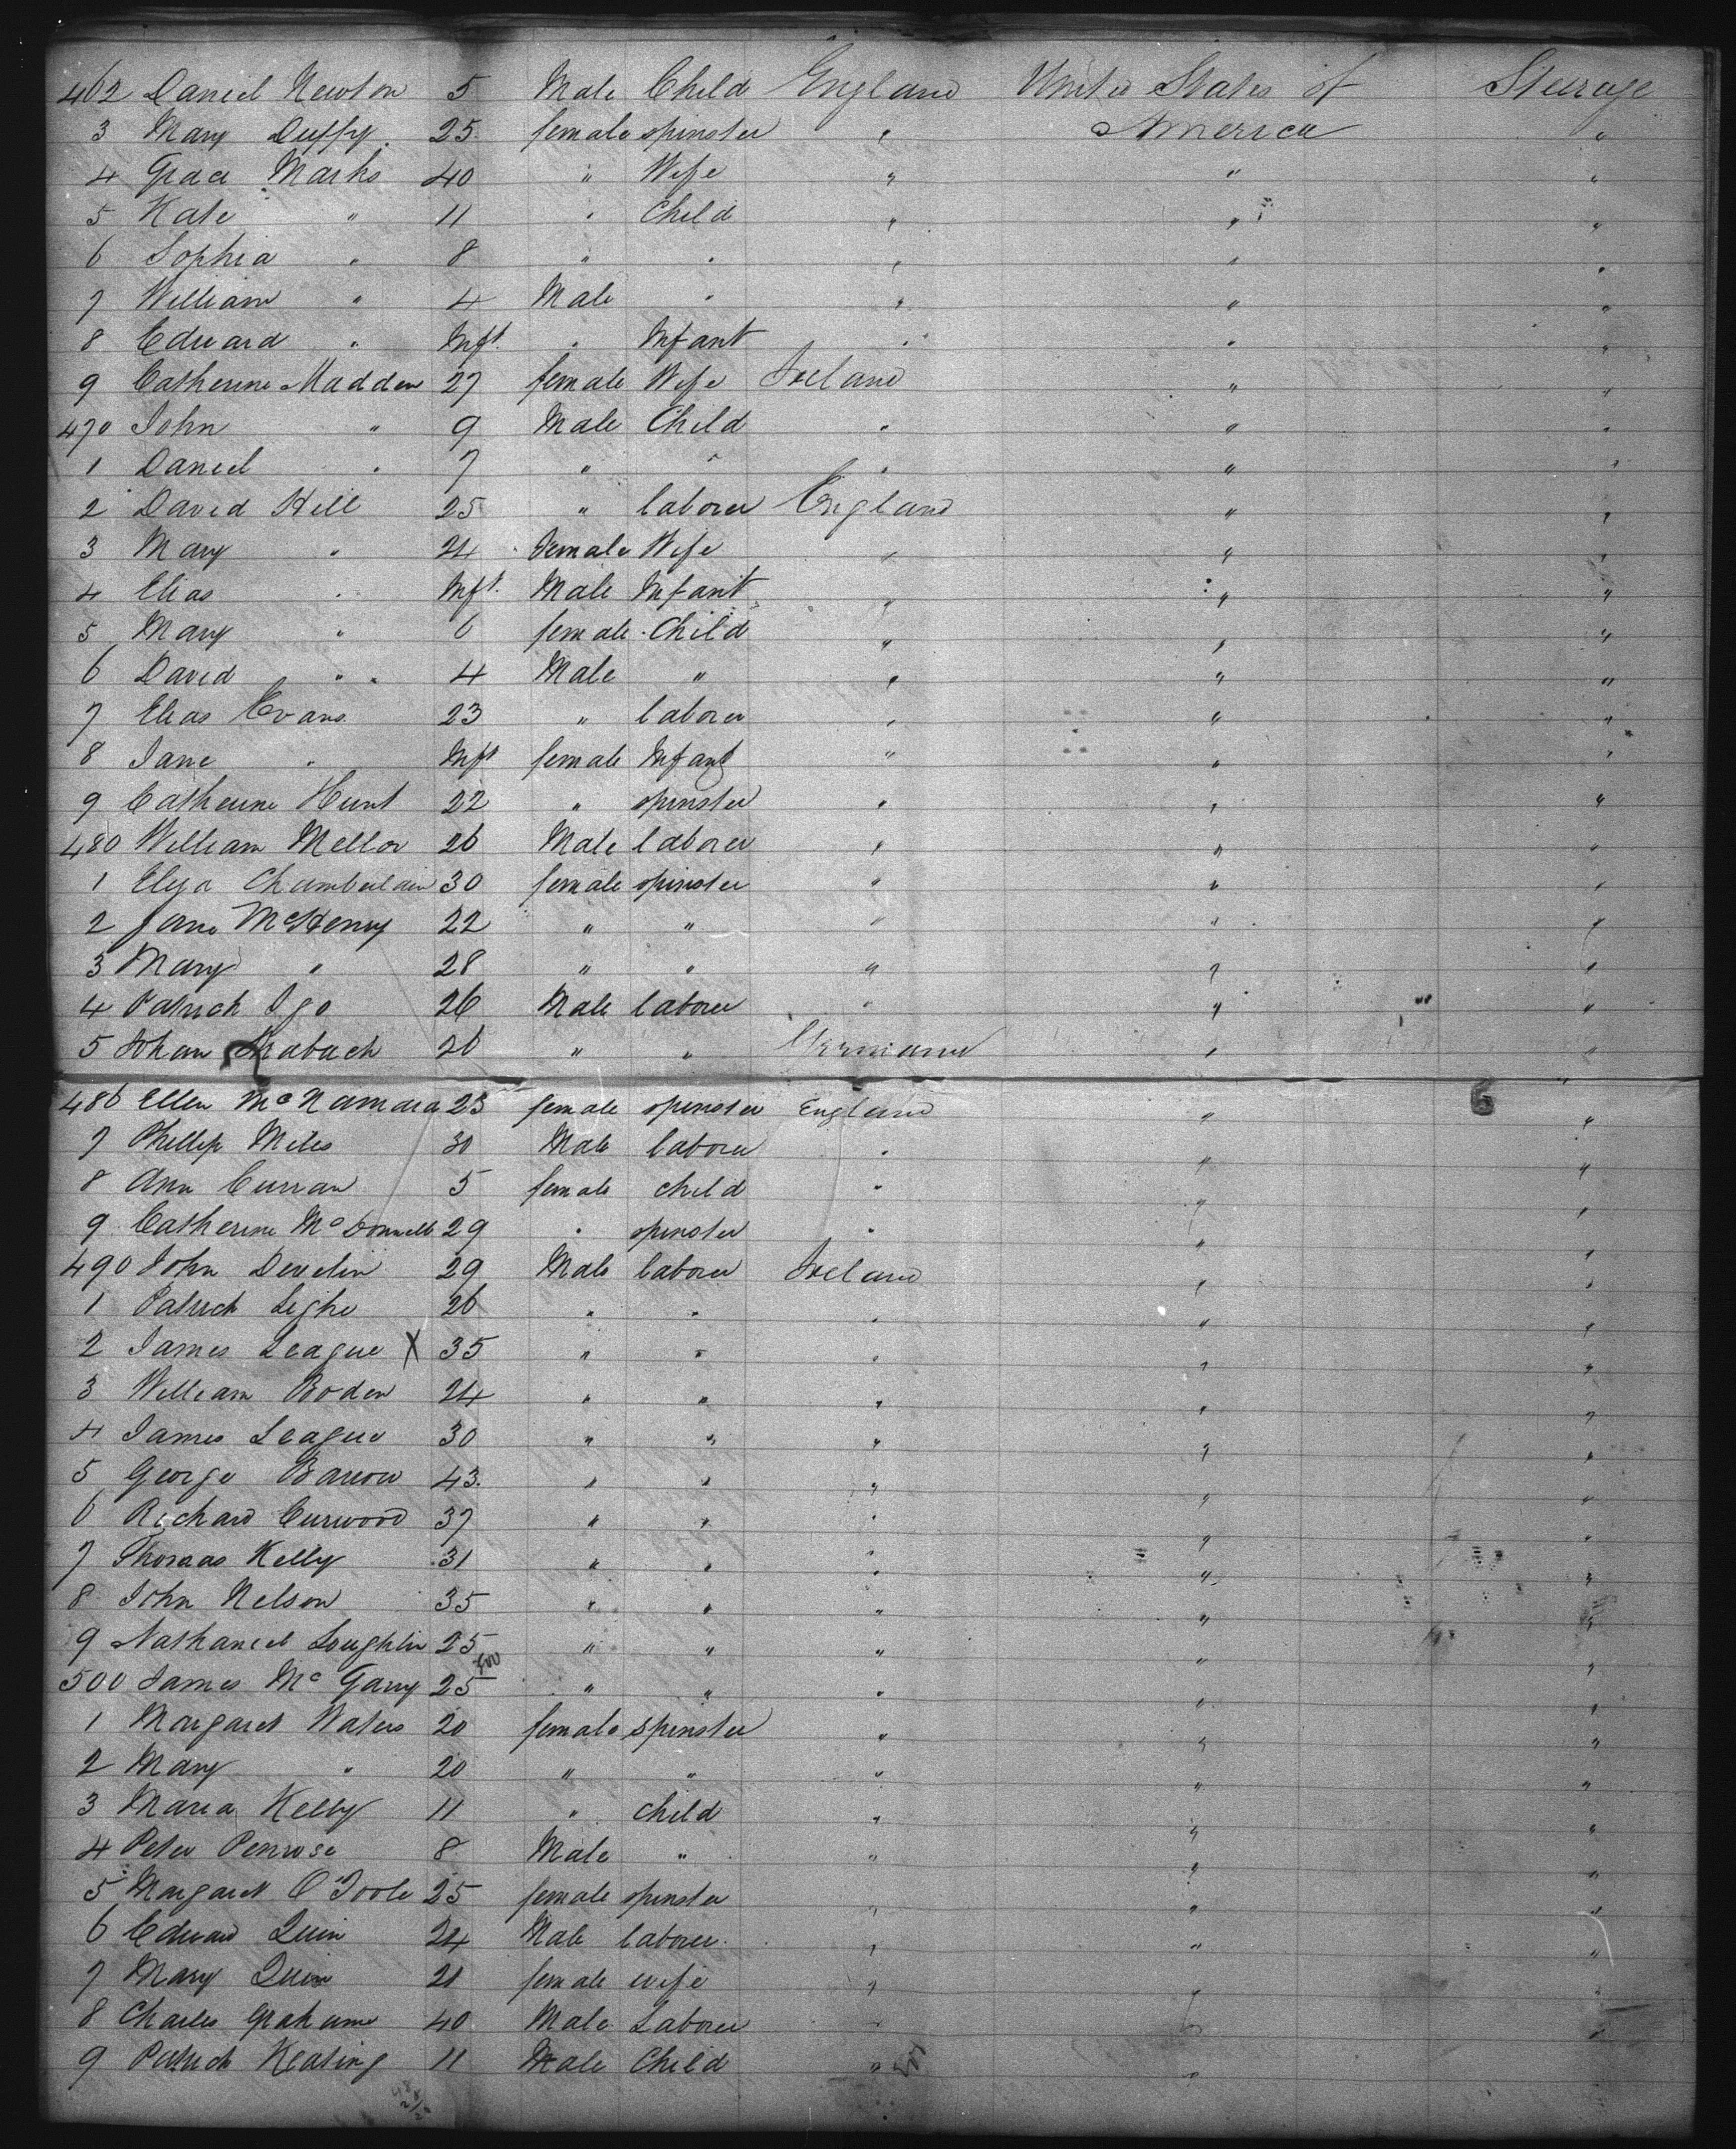 462 Daniel Newton 5 Male Child England United States of Steerage
3 Mary Duffy 25 female spinster " America "
4 Grace Marks 40 " Wife " " "
5 Kate " 11 " Child " " "
6 Sophia " 8 " " " " "
7 William " 4 Male " " " "
8 Edward " Inft. " Infant " " "
9 Catherine Madden 27 female Wife Ireland " "
470 John " 9 Male Child " " "
1 Daniel " 7 " " " " "
2 David Hill 25 " laborer England " "
3 Mary " 24 female Wife " " "
4 Elias " Inft. Male Infant " " "
5 Mary " 6 female Child " " "
6 David " 4 Male " " " "
7 Elias Evans 23 " laborer " " "
8 Jane " Inft female Infant " " "
9 Catherine Hunt 22 " spinster " " "
480 William Mellor 26 Male laborer " " "
1 Eliza Chamberlain 30 female spinster " " "
2 Jane McHenry 22 " " " " "
3 Mary " 28 " " " " "
4 Patrick Igo 26 Male laborer " " "
5 Johan 26 " " Germany " "
486 Ellen McNamara 23 female spinster England " "
7 Phillip Miles 30 Male laborer " " "
8 Ann Curran 5 female child " " "
9 Catherine McDonnell 29 " spinster " " "
490 John Develin 29 Male laborer Ireland " "
1 Patrick Leghe 26 " " " " "
2 James League X 35 " " " " "
3 William Boden 24 " " " " "
4 James League 30 " " " " "
5 George Barrow 43 " " " " "
6 Richard Curwood 37 " " " " "
7 Thomas Kelly 31 " " " " "
8 John Nelson 35 " " " " "
9 Nathaniel Loughlin 25 " " " " "
500 James McGarry 25 " " " " "
1 Margaret Waters 20 female spinster " " "
2 Mary " 20 " " " " "
3 Maria Kelly 11 " child " " "
4 Peter Penrose 8 Male " " " "
5 Margaret O'Toole 25 female spinster " " "
6 Edward Quin 24 Male laborer " " "
7 Mary Quin 21 female wife " " "
8 Charles Graham 40 Male Laborer " " "
9 Patrick Keating 11 Male Child " " "